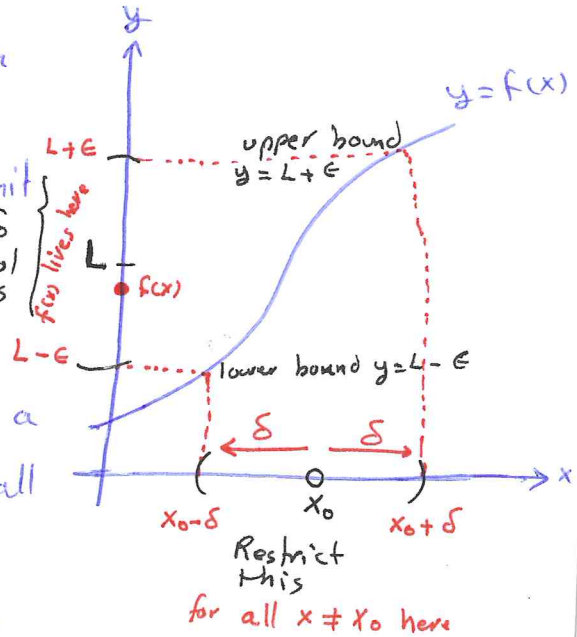 y
y = f(x)
L+ϵ
upper bound
y = L + ϵ
f(x) lives here
L
f(x)
L-ϵ
lower bound y=L-ϵ
a
δ δ
all
x
x₀-δ
x₀
x₀+δ
Restrict
this
for all x ≠ x₀ here